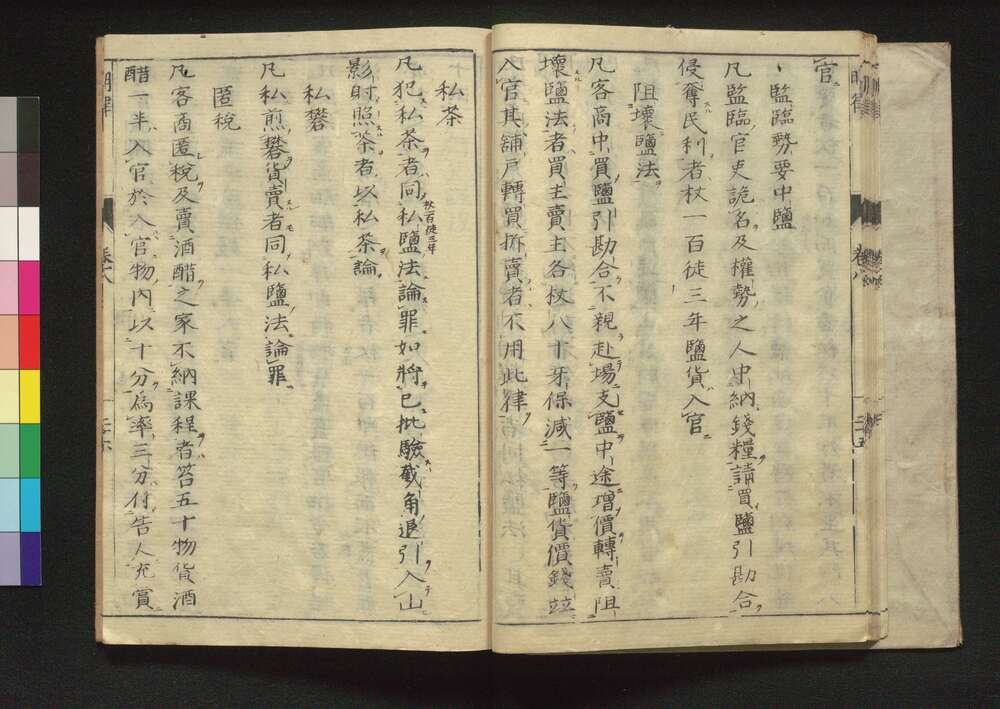 官
、監臨勢要中鹽
凡監臨官吏詭名及權勢之人中納錢糧請買鹽引勘合
侵奪民利者杖一百徒三年鹽貨入官
阻壞鹽法
凡客商中買鹽引勘合不親赴場支鹽中途增價轉賣阻
壞鹽法者買主賣主各杖八十牙保減一等鹽貨價錢竝
入官其舖戶轉買拆賣者不用此律
私茶
凡犯私茶者同私鹽法論罪如將已批驗截角退引入山
杖百徒三年
影射照茶者以私茶論
私礬
凡私煎礬貨賣者同私鹽法論罪
匿稅
凡客商匿稅及賣酒醋之家不納課程者笞五十物貨酒
醋一半入官於入官物內以十分爲率三分付告人充賞
明律 卷八